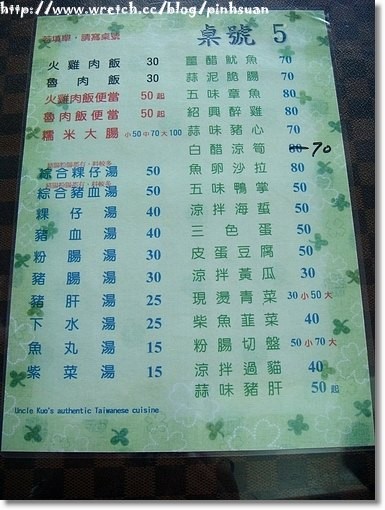 http://www.wretch.cc/blog/pinhsuan
桌號 5
火雞肉飯 30
魯肉飯 30
火雞肉飯便當 50起
魯肉飯便當 50起
糯米大腸 小50中70大100
綜合粿仔湯 50
綜合豬血湯 50
粿仔湯 40
豬血湯 40
粉腸湯 30
豬腸湯 30
豬肝湯 25
下水湯 25
魚丸湯 15
紫菜湯 15
Uncle Kuo's authentic Taiwanese cuisine
薑醋魷魚 70
蒜泥脆腸 70
五味章魚 80
紹興醉雞 80
蒜味豬心 70
白醋涼筍 80 70
魚卵沙拉 80
五味鴨掌 50
涼拌海蜇 50
三色蛋 50
皮蛋豆腐 50
涼拌黃瓜 30
現燙青菜 30小50大
柴魚韮菜 40
粉腸切盤 50小70大
涼拌過貓 40
蒜味豬肝 50起